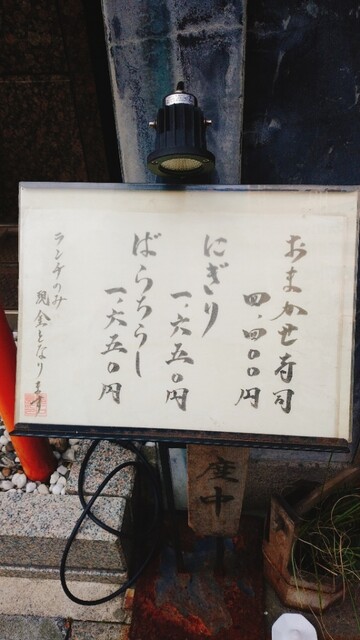 おまかせ寿司
四.四〇〇円
にぎり
一.六五〇円
ばらちらし
一.六五〇円
ランチのみ
現金となります
度中